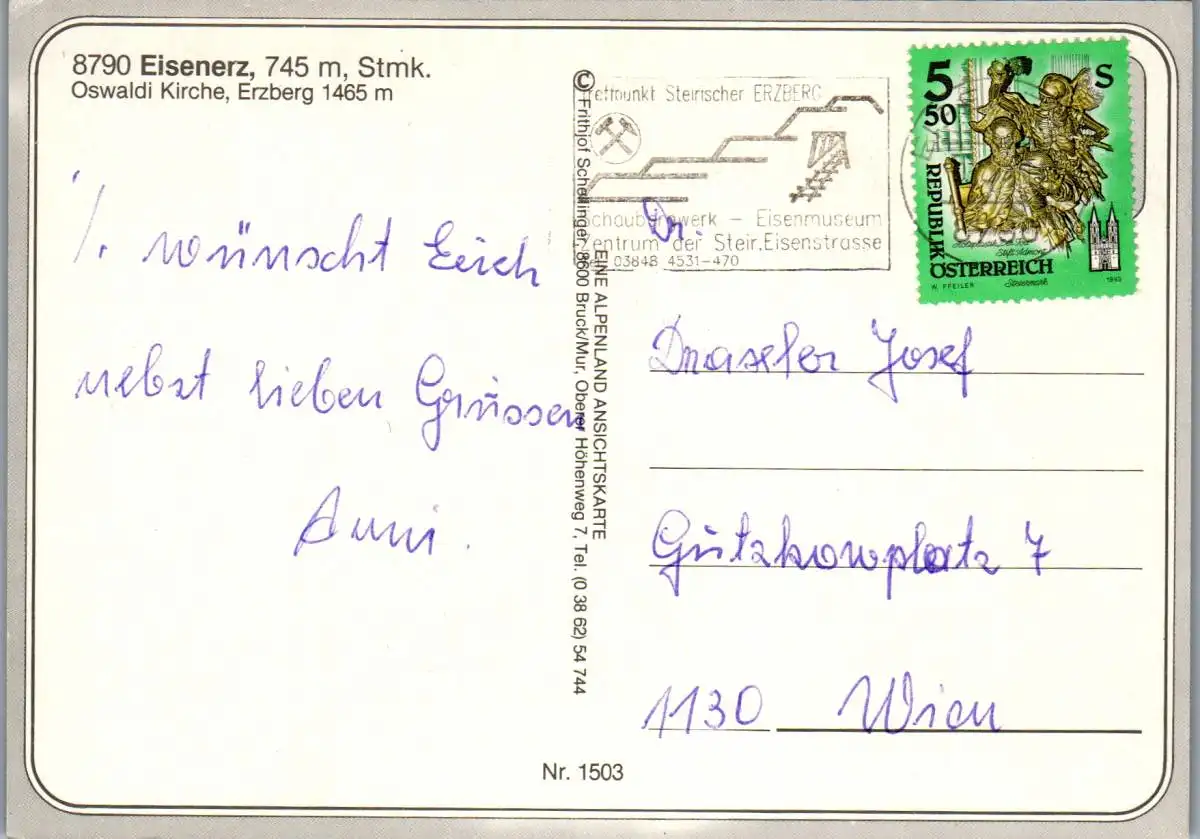 8790 Eisenerz, 745 m, Stmk.
Oswaldi Kirche, Erzberg 1465 m
./. wünscht Euch
nebst lieben Grüssen
Anni.
© Frithjof Schellinger, 8600 Bruck/Mur, Oberer Höhenweg 7, Tel. (0 38 62) 54 744
EINE ALPENLAND ANSICHTSKARTE
Steirischer ERZBERG
Schaubergwerk – Eisenmuseum
Zentrum der Steir. Eisenstrasse
03848 4531-470
5 50 S
REPUBLIK
ÖSTERREICH
Stift Admont
Steiermark
W. PFEILER
1993
Dr.
Draxler Josef
Gutzkowplatz 7
1130 Wien
Nr. 1503